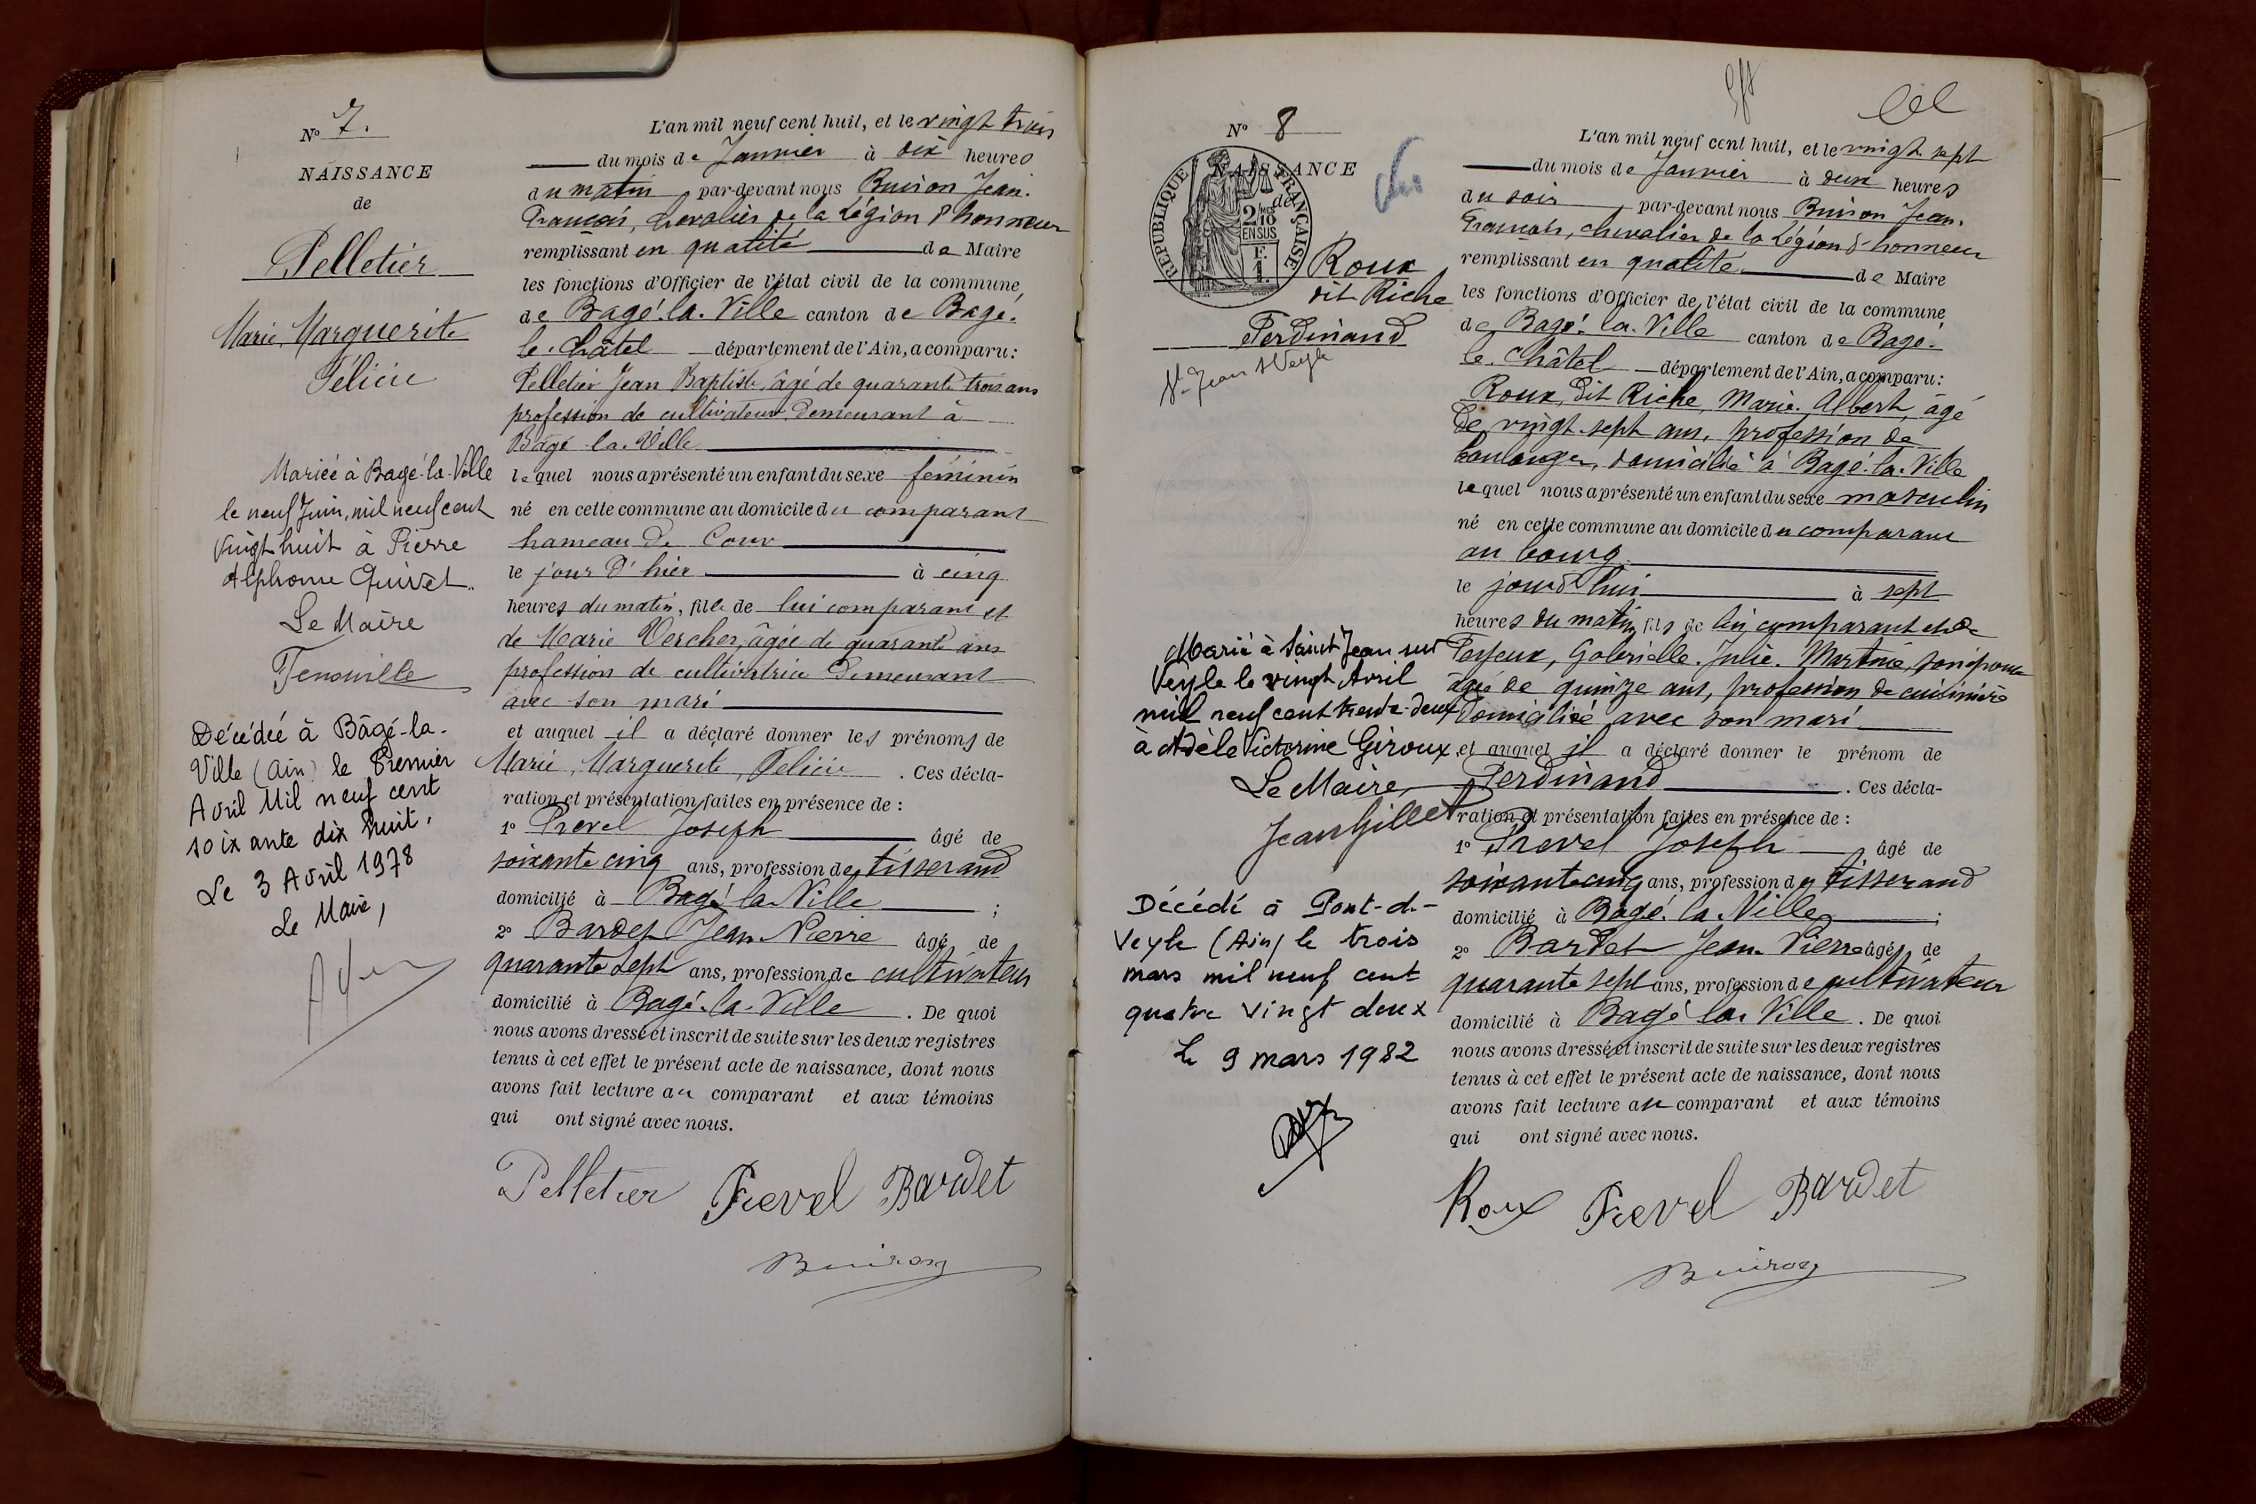 N° 7.
NAISSANCE
de
Pelletier
Marie, Marguerite
Félicie
Mariée à Bagé-la-Ville
le neuf Juin, mil neuf cent
vingt huit à Pierre
Alphonse Quivet.
Le Maire
Décédée à Bâgé-la-
Ville (Ain) le Premier
Avril Mil neuf cent
soixante dix huit.
Le 3 Avril 1978
Le Maire,
L'an mil neuf cent huit, et le vingt trois
du mois de Janvier à dix heures
du matin, par-devant nous Buiron Jean.
François, chevalier de la Légion d'honneur
remplissant en qualité de Maire
les fonctions d'Officier de l'état civil de la commune
de Bagé-la-Ville canton de Bagé-
le-Châtel département de l'Ain, a comparu :
Pelletier Jean Baptiste, âgé de quarante trois ans
profession de cultivateur demeurant à
Bagé la Ville
lequel nous a présenté un enfant du sexe féminin
né en cette commune au domicile du comparant
hameau de Cour
le jour d'hier à cinq
heures du matin, fille de lui comparant et
de Marie Vercher, âgée de quarante ans
profession de cultivatrice demeurant
avec son mari
et auquel il a déclaré donner les prénoms de
Marie, Marguerite, Félicie . Ces décla-
ration et présentation faites en présence de :
1° Prevel Joseph âgé de
soixante cinq ans, profession de tisserand
domicilié à Bagé la Ville ;
2° Bardet Jean Pierre âgé de
quarante sept ans, profession de cultivateur
domicilié à Bagé-la-Ville . De quoi
nous avons dressé et inscrit de suite sur les deux registres
tenus à cet effet le présent acte de naissance, dont nous
avons fait lecture au comparant et aux témoins
qui ont signé avec nous.
Pelletier Prevel Bardet
Buiron
N° 8
NAISSANCE
de
REPUBLIQUE FRANÇAISE
2/10
EN SUS
Roux
dit Riche
Ferdinand
St Jean s/Veyle
Marié à Saint Jean sur
Veyle le vingt Avril
mil neuf cent trente-deux
à Adèle Victorine Giroux
Le Maire,
Jean Gillet
Décédé à Pont-de-
Veyle (Ain) le trois
mars mil neuf cent
quatre vingt deux
Le 9 mars 1982
L'an mil neuf cent huit, et le vingt sept
du mois de Janvier à deux heures
du soir, par-devant nous Buiron Jean.
François, chevalier de la Légion d'honneur
remplissant en qualité de Maire
les fonctions d'Officier de l'état civil de la commune
de Bagé-la-Ville canton de Bagé-
le Châtel département de l'Ain, a comparu :
Roux, dit Riche, Marie. Albert, âgé
de vingt-sept ans, profession de
boulanger, domicilié à Bagé-la-Ville
lequel nous a présenté un enfant du sexe masculin
né en cette commune au domicile du comparant
au bourg
le jourd'hui à sept
heures du matin, fils de lui comparant et de
Gabrielle. Julie. son épouse
âgée de quinze ans, profession de cuisinière
domiciliée avec son mari
et auquel il a déclaré donner le prénom de
Ferdinand . Ces décla-
ration et présentation faites en présence de :
1° Prevel Joseph âgé de
soixante cinq ans, profession de tisserand
domicilié à Bagé la Ville ;
2° Bardet Jean Pierre âgé de
quarante sept ans, profession de cultivateur
domicilié à Bagé la Ville . De quoi
nous avons dressé et inscrit de suite sur les deux registres
tenus à cet effet le présent acte de naissance, dont nous
avons fait lecture au comparant et aux témoins
qui ont signé avec nous.
Roux Prevel Bardet
Buiron